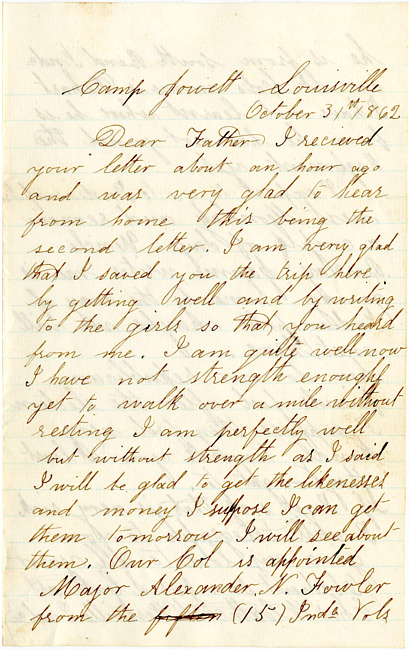 Camp Jowett Louisville
October 31st 1862
Dear Father I recieved
your letter about an hour ago
and was very glad to hear
from home this being the
second letter. I am very glad
that I saved you the trip here
by getting well and by writing
to the girls so that you heard
from me. I am quite well now
I have not strength enough
yet to walk over a mile without
resting I am perfectly well
but without strength as I said
I will be glad to get the likenesses
and money I suppose I can get
them tomorrow I will see about
them. Our Col is appointed
Major Alexander N. Fowler
from the fiften (15) Inda Vols